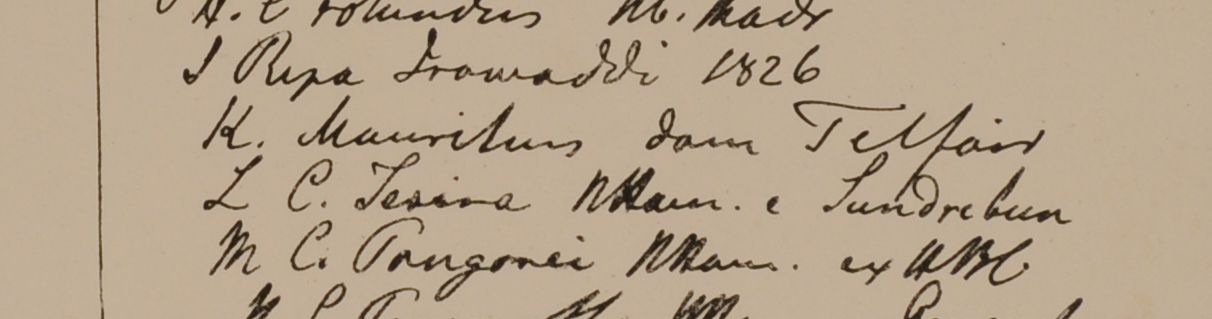 H. C rotundus Hb. Madr
I Ripa Irawaddi 1826
K. Mauritius dom Telfair
L C. Tesina HHam. e Sundrebun
M C. Pangorei HHam. ex HBC